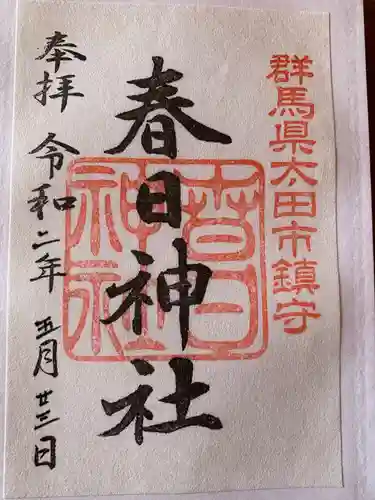 群馬県太田市鎮守
春日神社
春日神社
奉拝 令和二年 五月廿三日